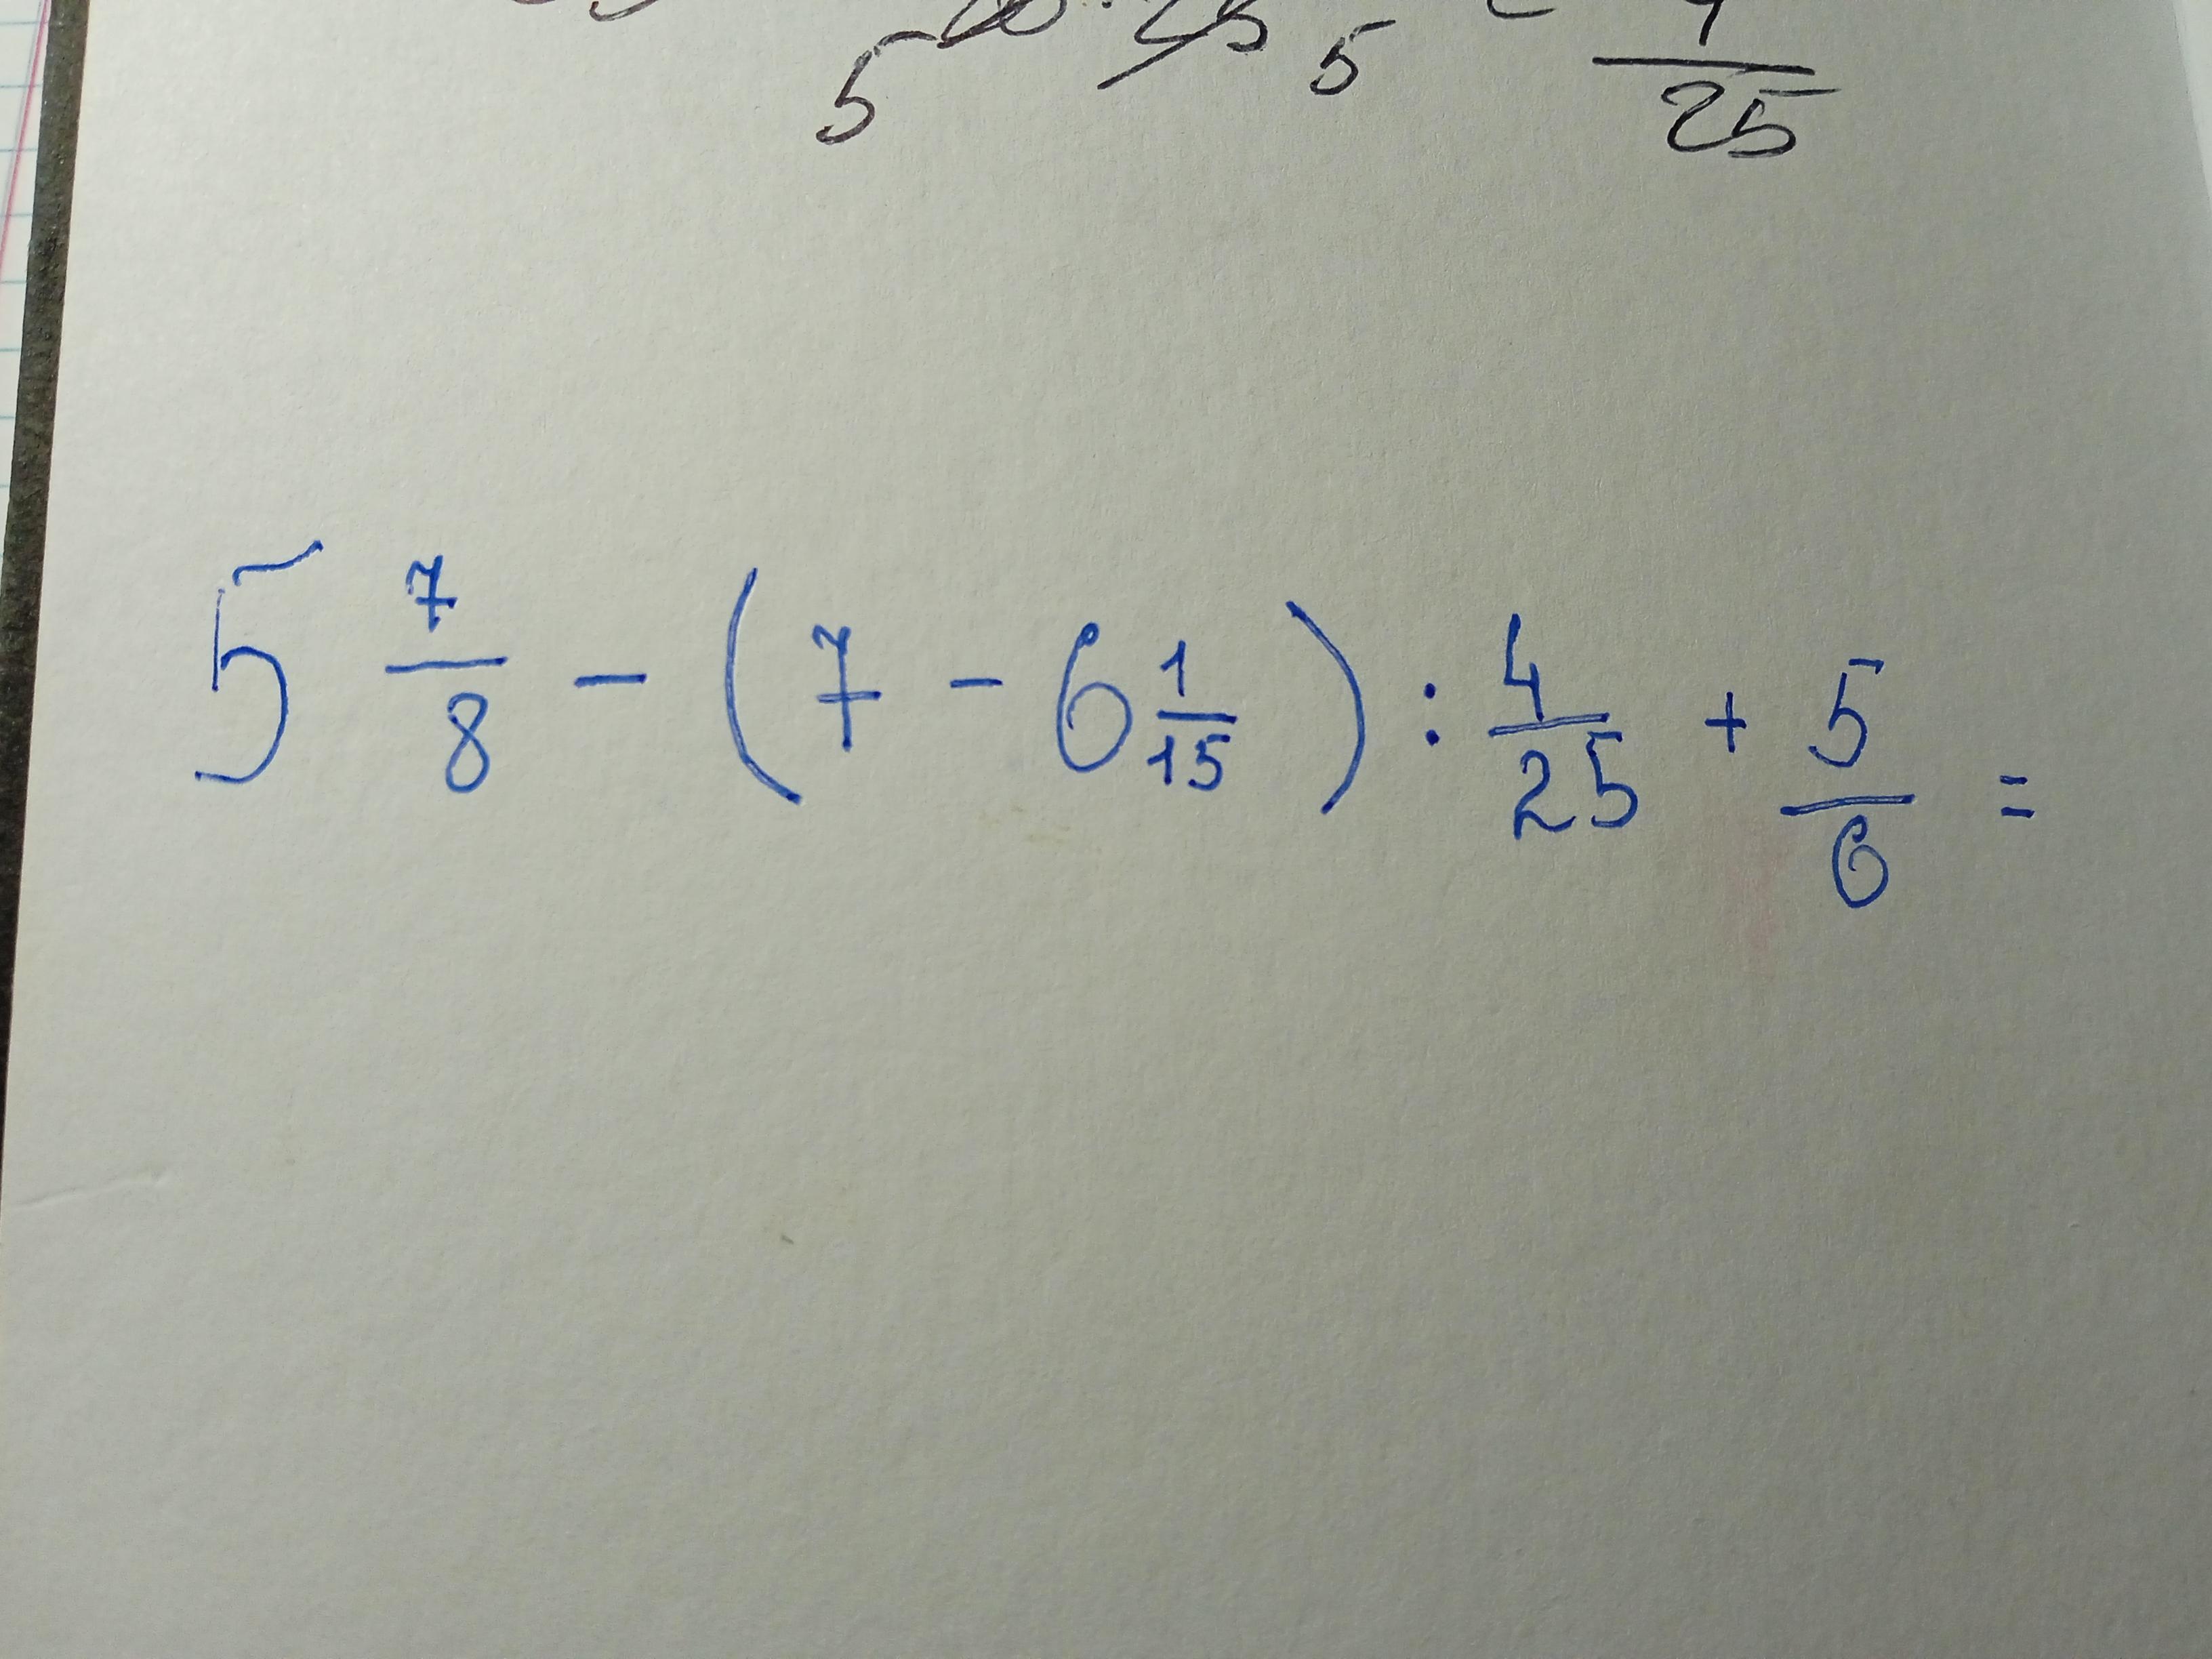 5 25 5 25
5 7/8 - (7 - 6 1/15) : 4/25 + 5/6 =